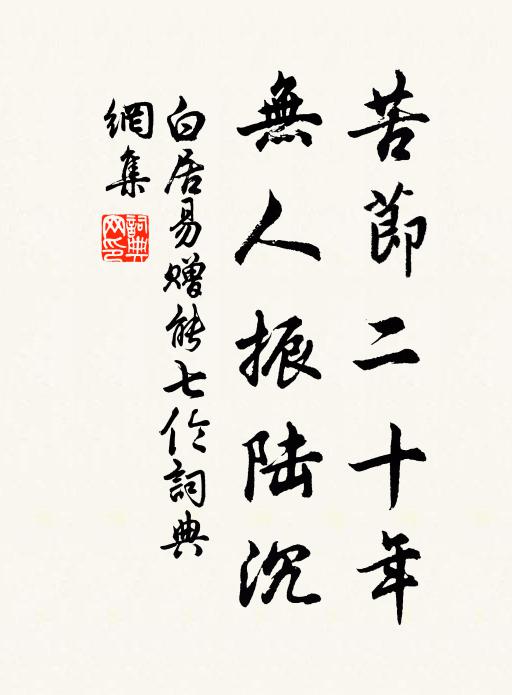 苦節二十年
無人振陸沉
白居易赠能七伦詞典
網集
詞典網印